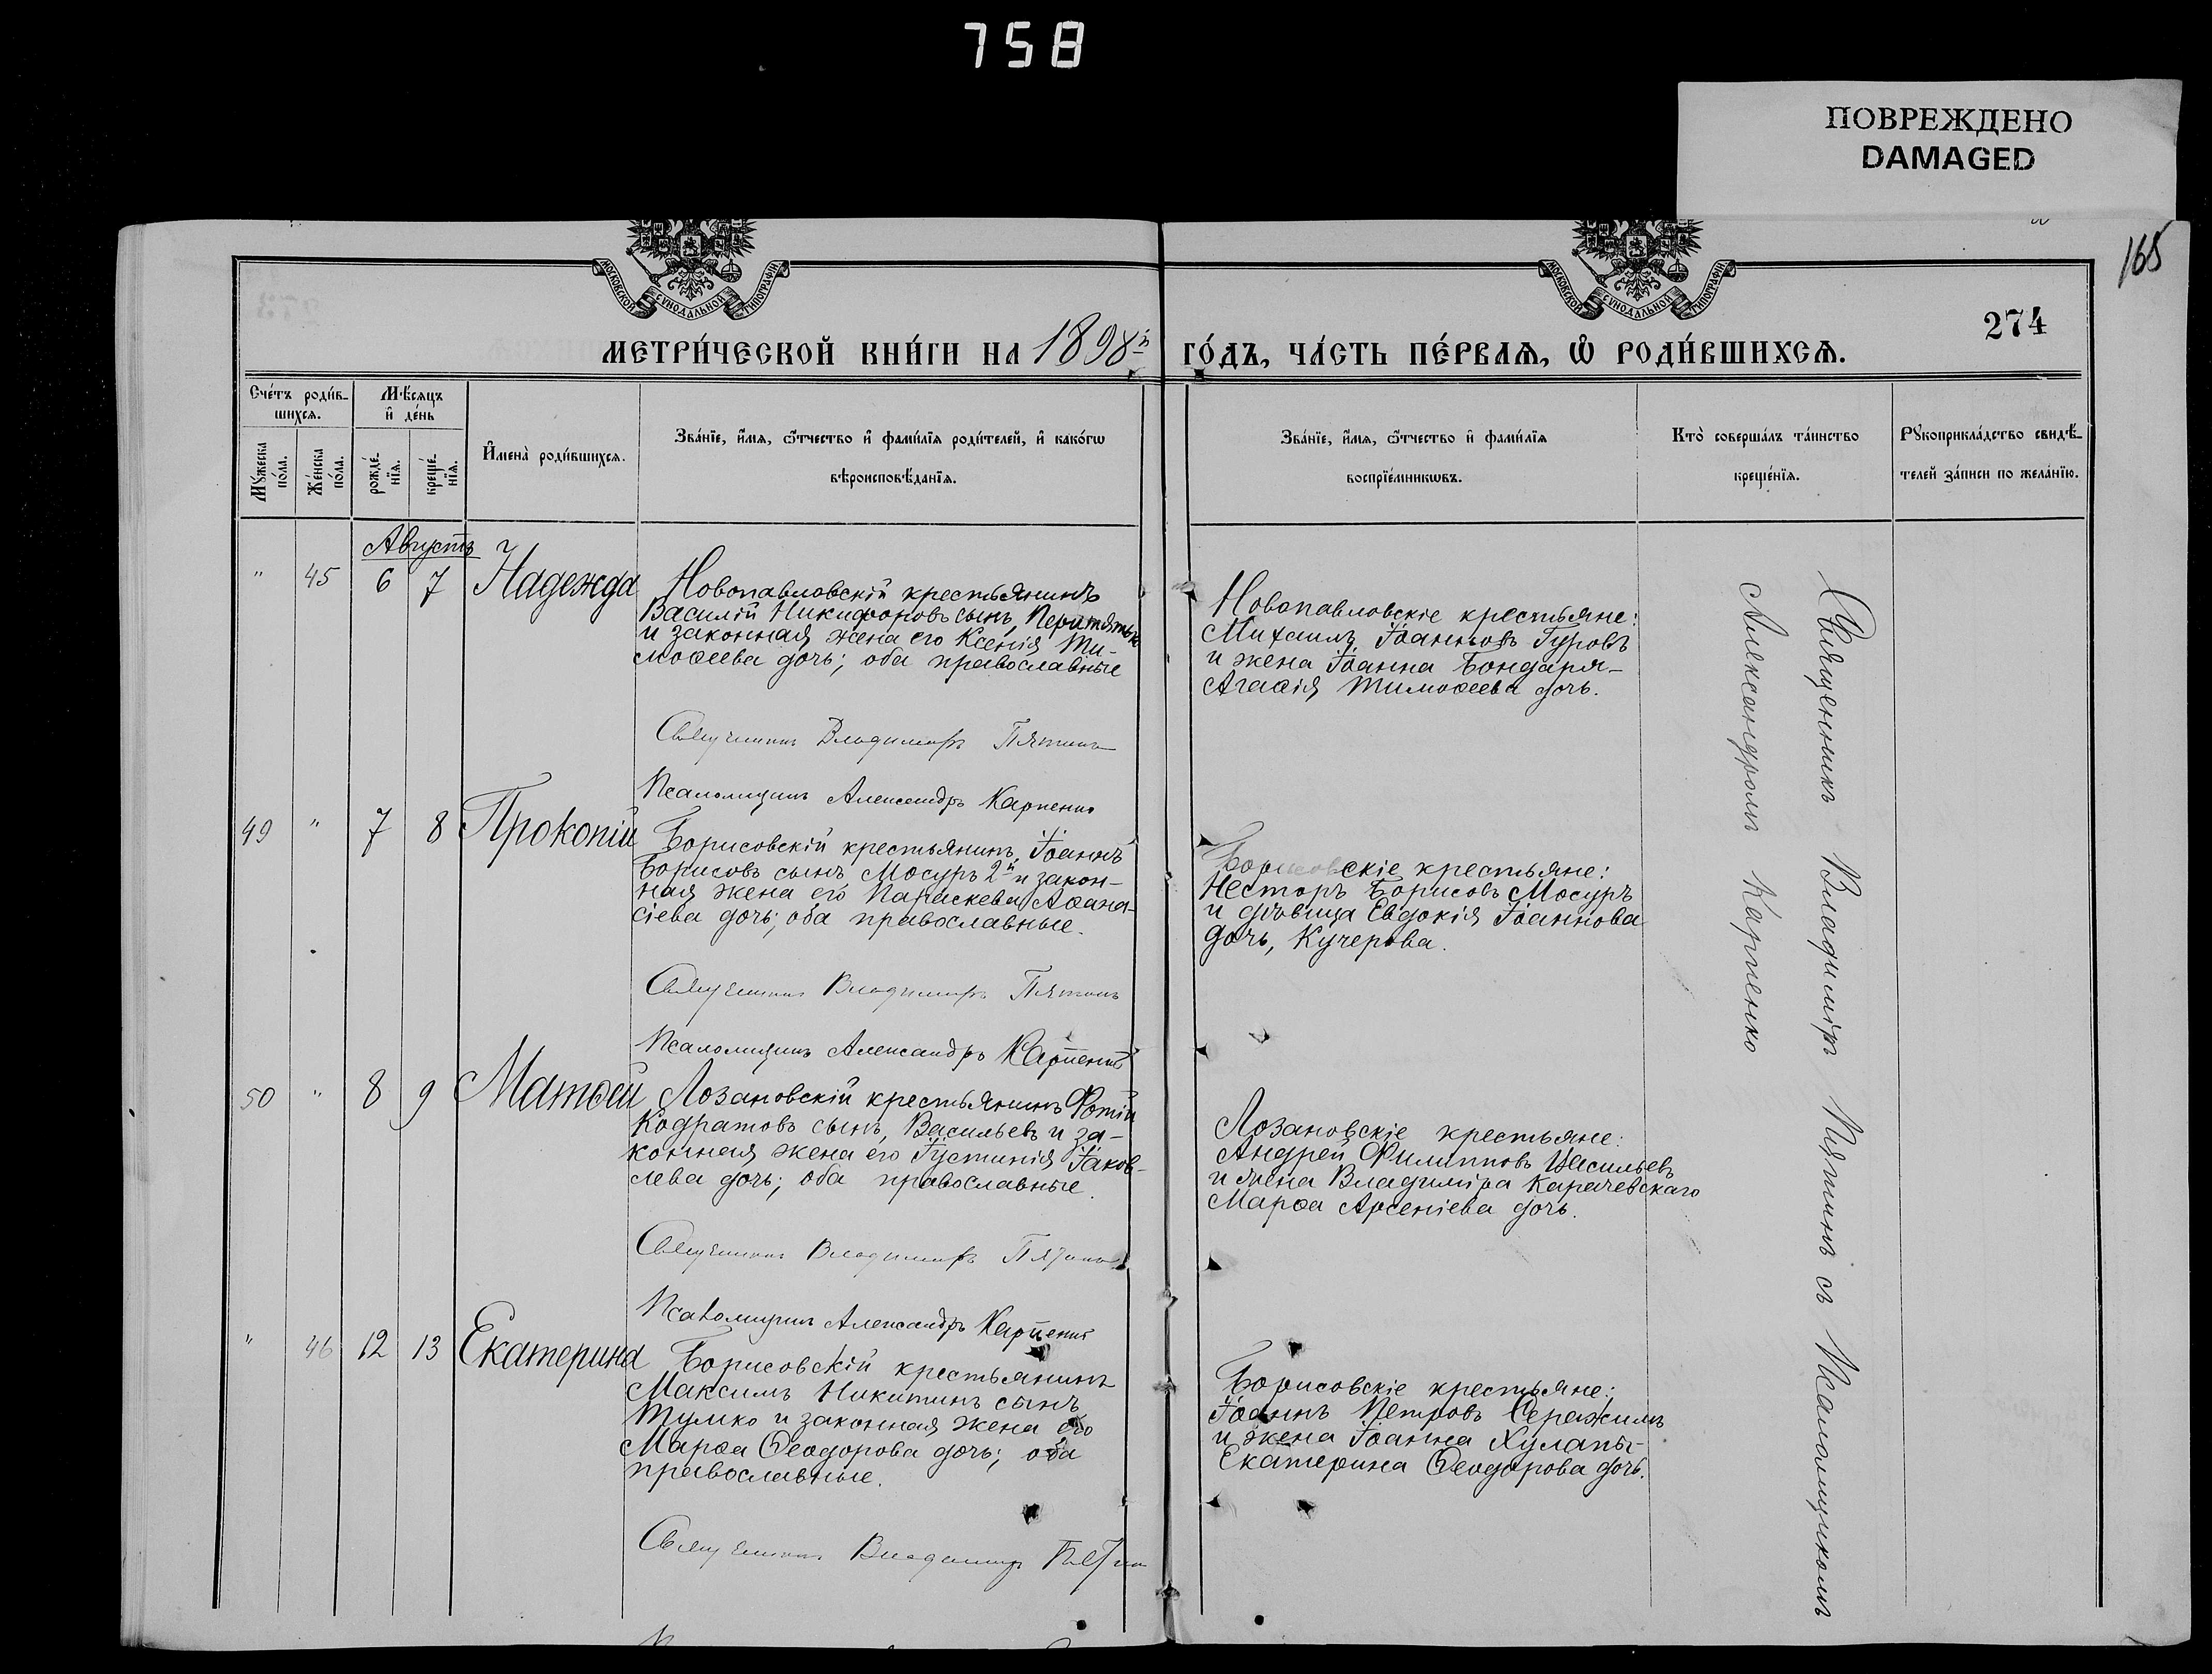 758
ПОВРЕЖДЕНО
DAMAGED
165
274
МОСКОВСКОЙ СѴНОДАЛЬНОЙ ТИПОГРАФІИ
МОСКОВСКОЙ СѴНОДАЛЬНОЙ ТИПОГРАФІИ
МЕТРИ́ЧЕСКОЙ КНИ́ГИ НА 1898й ГО́ДЪ, ЧА́СТЬ ПЕ́РВАѦ, Ѽ РОДИ́ВШИХСѦ.
Счéтъ роди́в-
шихсѧ.
Мѣ́сяцъ
и҆ де́нь
Мꙋ́жеска
по́ла.
Же́нска
по́ла.
рожде́-
нїѧ.
креще́-
нїѧ.
И҆мена̀ роди́вшихсѧ.
Зва́нїе, и҆́мѧ, ѻ҆́тчество и҆ фамѝлїѧ роди́телей, и҆ како́гѡ
вѣроисповѣ́данїѧ.
Зва́нїе, и҆́мѧ, ѻ҆́тчество и҆ фами́лїѧ
воспрїе́мникѡвъ.
Кто̀ соверша́лъ та́инство
креще́нїѧ.
Рꙋкоприкла́дство свидѣ́-
телей за́писи по жела́нїю.
Августъ
" 45 6 7 Надежда
Новопавловскій крестьянинъ
Василій Никифоровъ сынъ,
и законная жена его Ксенія Ти-
моѳеева дочь; оба православные
Священникъ Владиміръ Пятинъ
Псаломщикъ Александръ Карпенко
Новопавловскіе крестьяне:
Михаилъ Іоанновъ Гуровъ
и жена Іоанна Бондаря-
Агаѳія Тимоѳеева дочь.
49 " 7 8 Прокопій
Борисовскій крестьянинъ, Іоаннъ
Борисовъ сынъ Мосуръ 2й и закон-
ная жена его Параскева Аѳана-
сіева дочь; оба православные.
Священникъ Владиміръ Пятинъ
Псаломщикъ Александръ Карпенко
Борисовскіе крестьяне:
Несторъ Борисовъ Мосуръ
и дѣвица Евдокія Іоаннова
дочь, Кучерова.
50 " 8 9 Матѳей
Лозановскій крестьянинъ Фотій
Кодратовъ сынъ, Васильевъ и за-
конная жена его Іустинія Іаков-
лева дочь; оба православные.
Священникъ Владиміръ Пятинъ
Псаломщикъ Александръ Карпенко
Лозановскіе крестьяне:
Андрей Филипповъ Васильевъ
и жена Владиміра Карачевскаго
Марѳа Арсеніева дочь.
" 46 12 13 Екатерина
Борисовскій крестьянинъ
Максимъ Никитинъ сынъ
Тумко и законная жена его
Марѳа Ѳеодорова дочь; оба
православные.
Священникъ Владиміръ Пятинъ
Борисовскіе крестьяне:
Іоаннъ Петровъ
и жена Іоанна Хулапы-
Екатерина Ѳеодорова дочь.
Священникъ Владиміръ Пятинъ съ Псаломщикомъ
Александромъ Карпенко